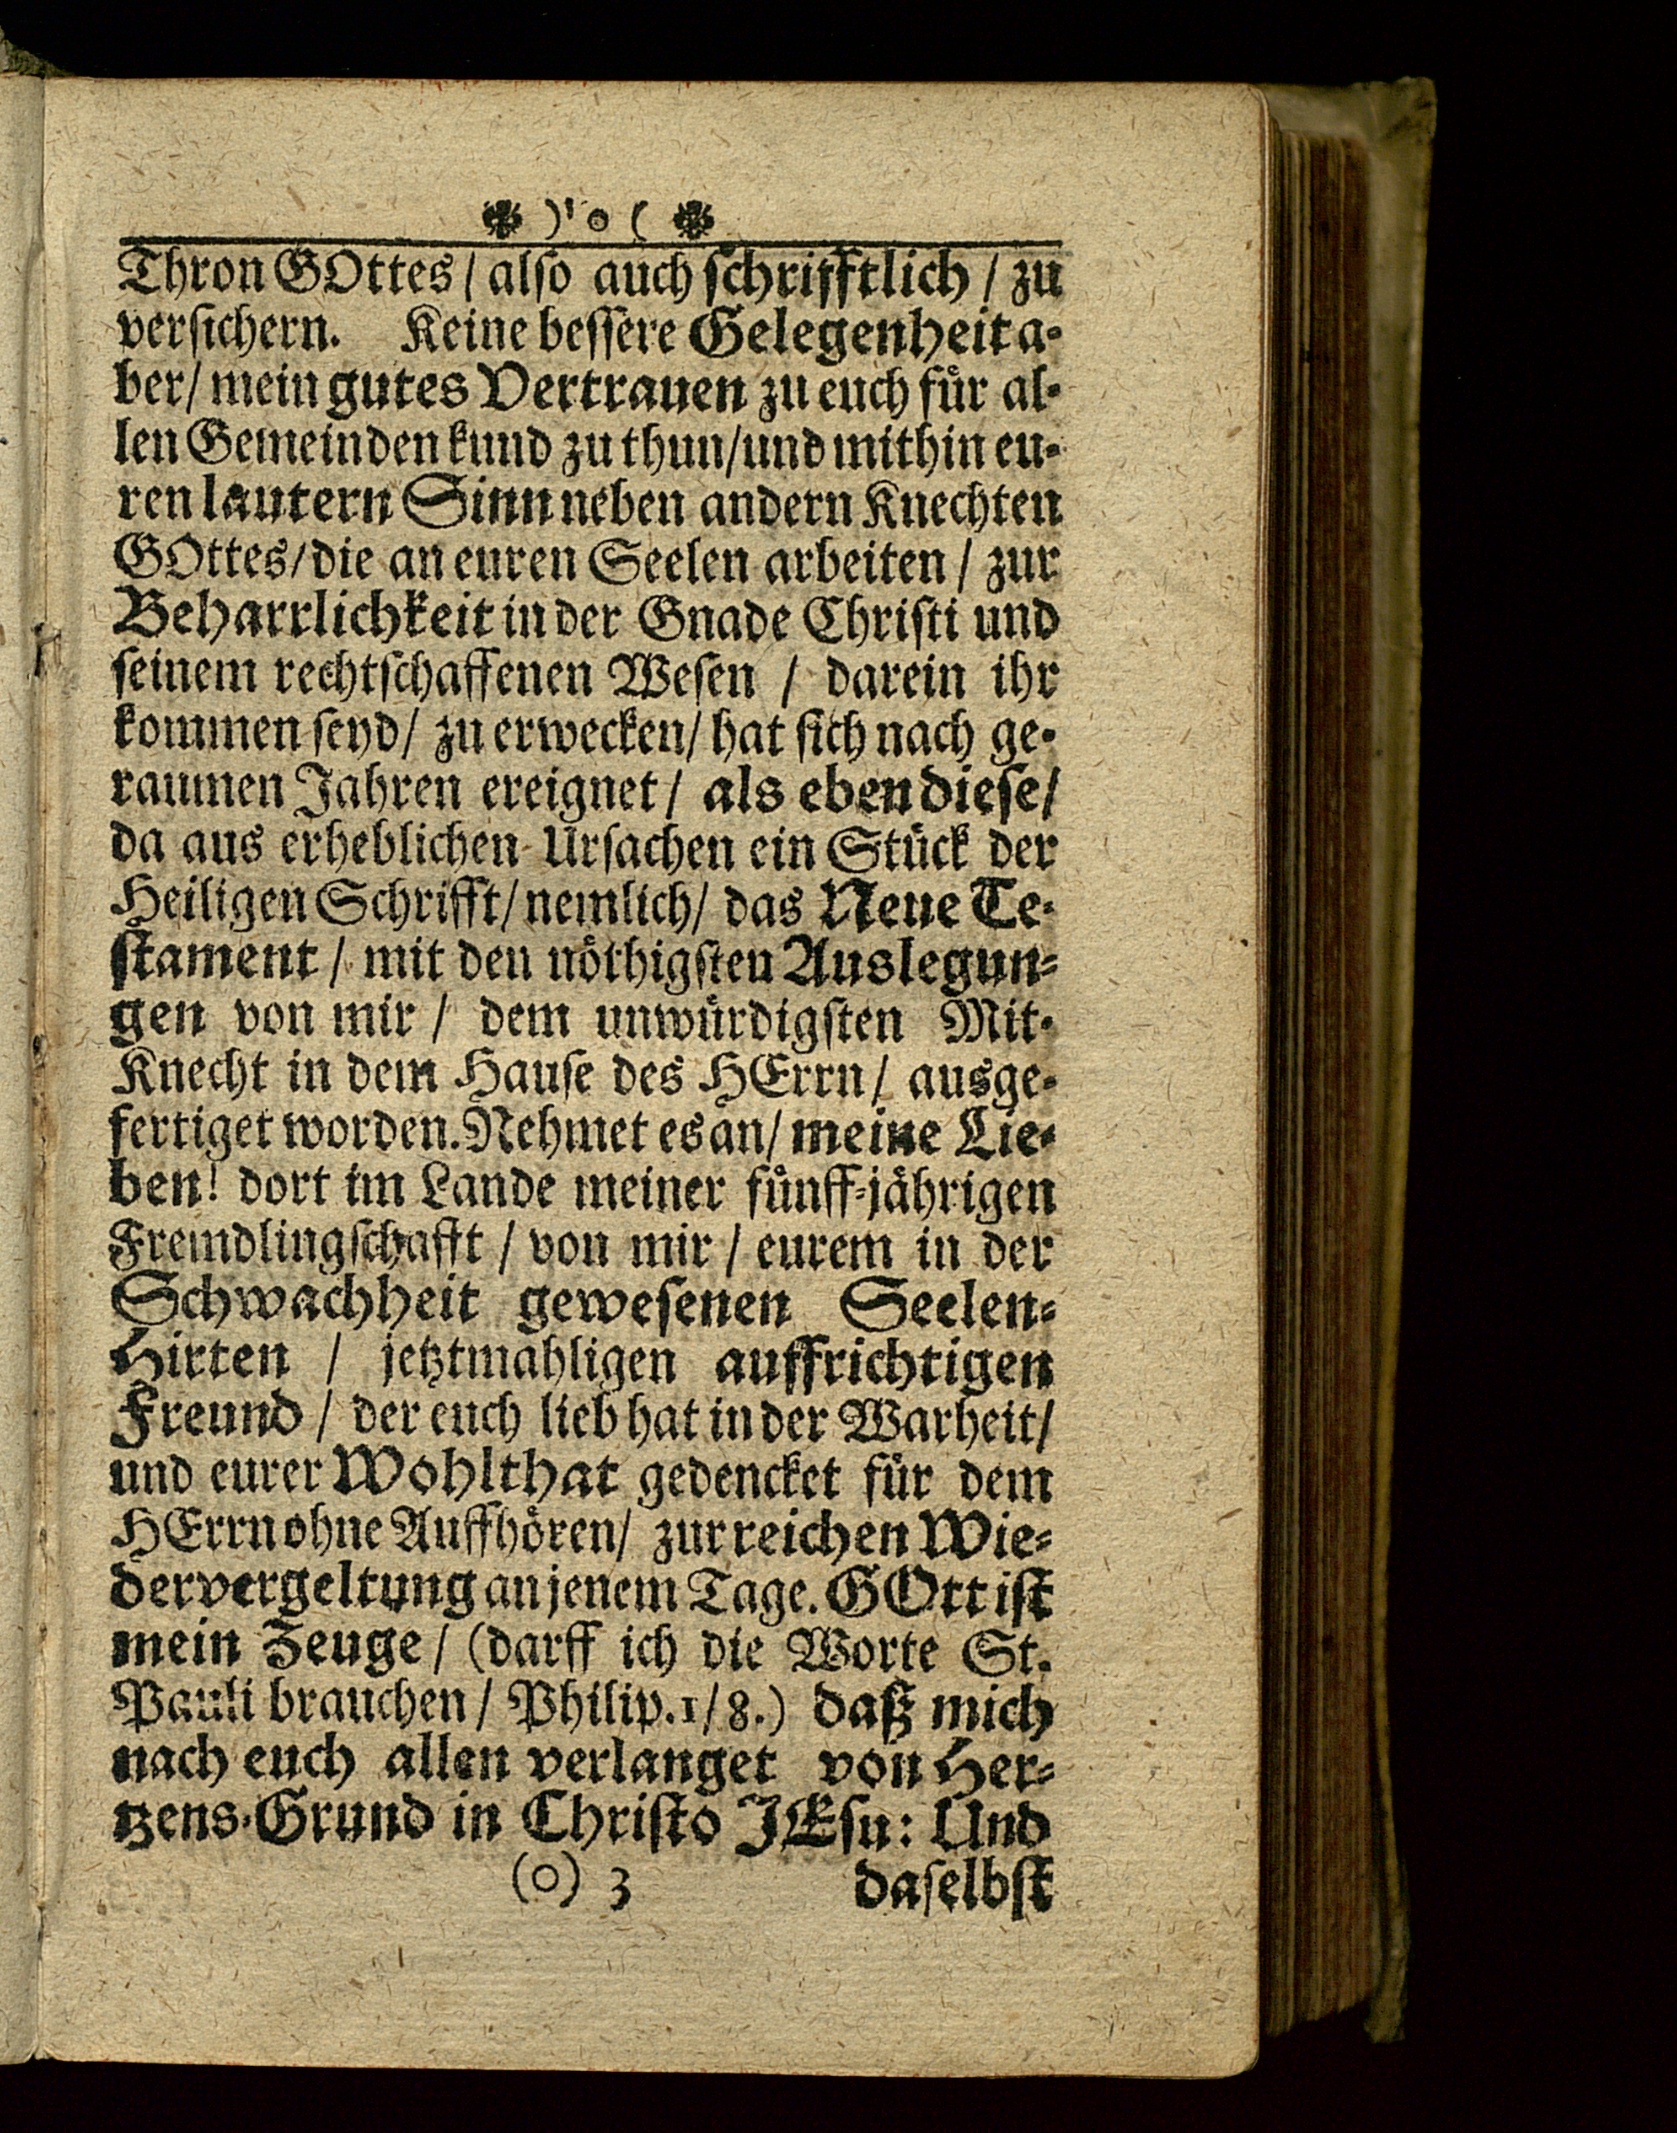 ❧ )' o ( ❧
Thron GOttes / also auch schrifftlich / zu
versichern. Keine bessere Gelegenheit a-
ber / mein gutes Vertrauen zu euch für al-
len Gemeinden kund zu thun / und mithin eu-
ren lautern Sinn neben andern Knechten
GOttes / die an euren Seelen arbeiten / zur
Beharrlichkeit in der Gnade Christi und
seinem rechtschaffenen Wesen / darein ihr
kommen seyd / zu erwecken / hat sich nach ge-
raumen Jahren ereignet / als eben diese /
da aus erheblichen Ursachen ein Stück der
Heiligen Schrifft / nemlich / das Neue Te-
stament / mit den nöthigsten Auslegun-
gen von mir / dem unwürdigsten Mit-
Knecht in dem Hause des HErrn / ausge-
fertiget worden. Nehmet es an / meine Lie-
ben! dort im Lande meiner fünff-jährigen
Fremdlingschafft / von mir / eurem in der
Schwachheit gewesenen Seelen-
Hirten / jetztmahligen auffrichtigen
Freund / der euch lieb hat in der Warheit /
und eurer Wohlthat gedencket für dem
HErrn ohne Auffhören / zur reichen Wie-
dervergeltung an jenem Tage. GOtt ist
mein Zeuge / (darff ich die Worte St.
Pauli brauchen / Philip. 1/8.) daß mich
nach euch allen verlanget von Her-
tzens-Grund in Christo JEsu: Und
(o) 3 daselbst